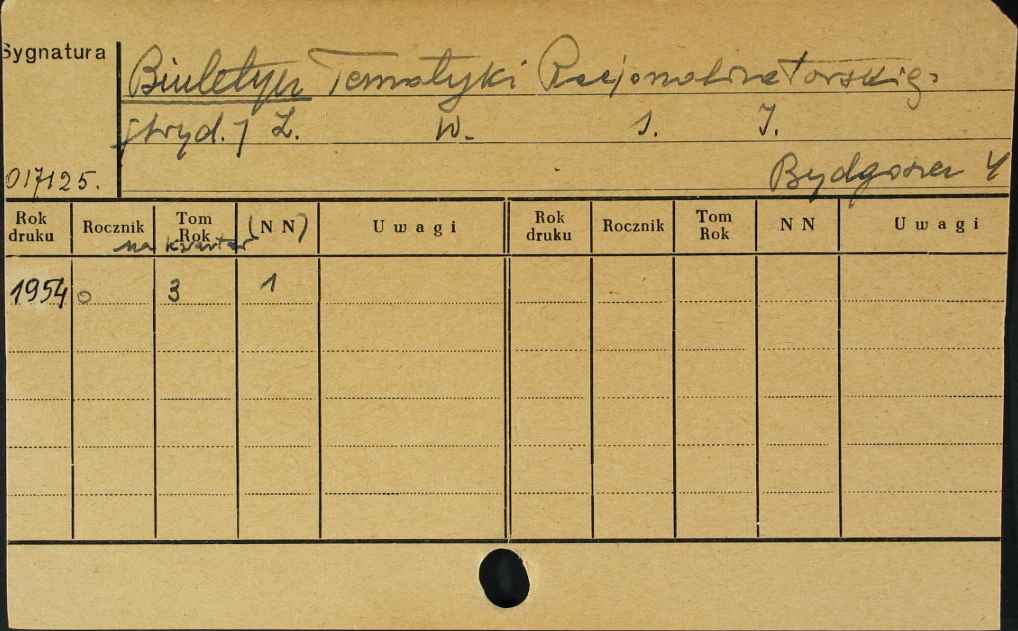 Sygnatura
Biuletyn Tematyki Racjonalizatorskiej
[wyd.] Z. W. S. I.
Bydgoszcz 4
017125.
Rok druku Rocznik Tom Rok (N N) U w a g i Rok druku Rocznik Tom Rok N N U w a g i
na kwartał
1954 0 3 1